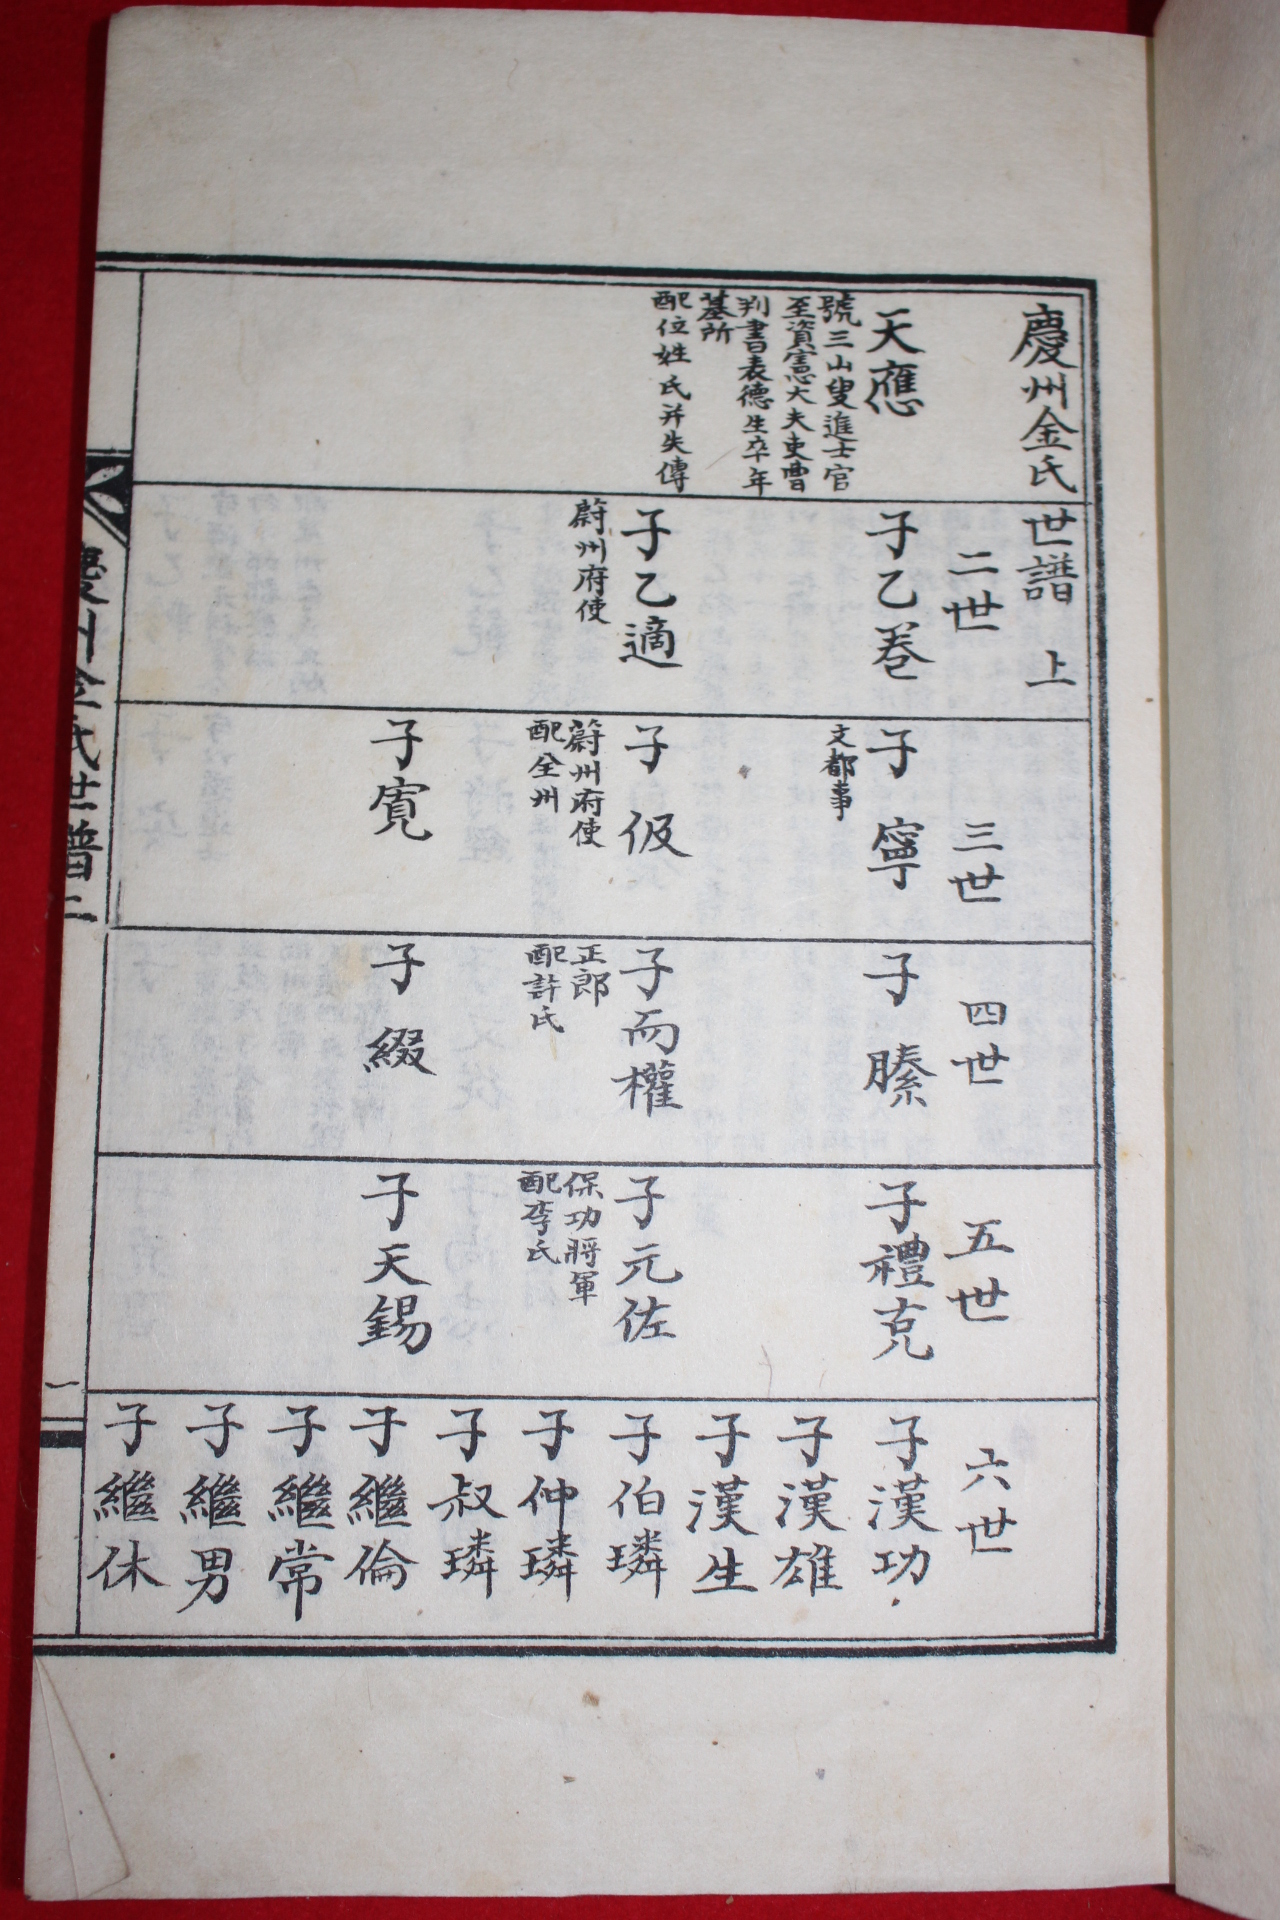 慶州金氏世譜 上
天應
號三山叟進士官
至資憲大夫吏曹
判書表德生卒年
墓所
配位姓氏并失傳
二世
子乙卷
子乙適
蔚州府使
三世
子寧
文都事
子伋
蔚州府使
配全州
子寬
四世
子縢
子而權
正郎
配許氏
子綴
五世
子禮克
子元佐
保功將軍
配李氏
子天錫
六世
子漢功
子漢雄
子漢生
子伯璘
子仲璘
子叔璘
子繼倫
子繼常
子繼男
子繼休
慶州金氏世譜上
一